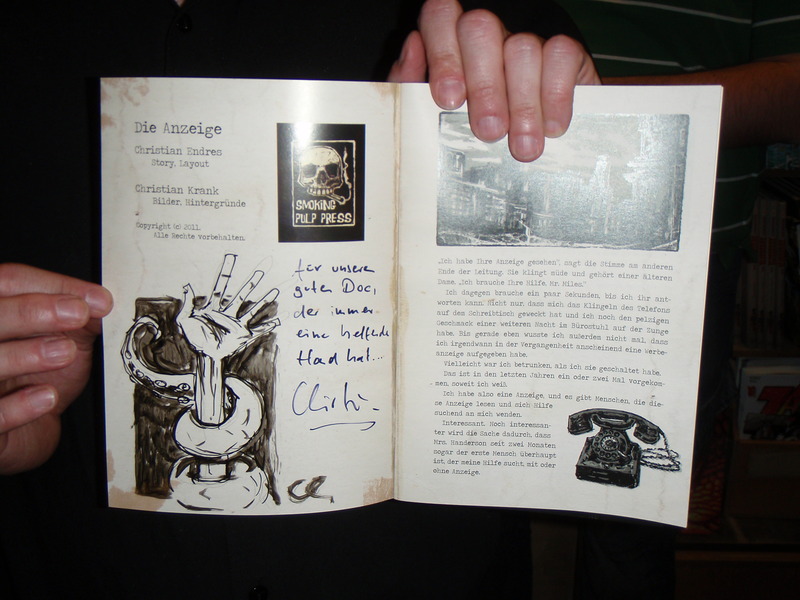 Die Anzeige
Christian Endres
Story, Layout
Christian Krank
Bilder, Hintergründe
Copyright (c) 2011.
Alle Rechte vorbehalten.
SMOKING
PULP PRESS
für unseren
guten Doc,
der immer
eine helfende
Hand hat...
„Ich habe Ihre Anzeige gesehen", sagt die Stimme am anderen
Ende der Leitung. Sie klingt müde und gehört einer älteren
Dame. „Ich brauche Ihre Hilfe, Mr. Miles."
Ich dagegen brauche ein paar Sekunden, bis ich ihr ant-
worten kann. Nicht nur, dass mich das Klingeln des Telefons
auf dem Schreibtisch geweckt hat und ich noch den pelzigen
Geschmack einer weiteren Nacht im Bürostuhl auf der Zunge
habe. Bis gerade eben wusste ich außerdem nicht mal, dass
ich irgendwann in der Vergangenheit anscheinend eine Werbe-
anzeige aufgegeben habe.
Vielleicht war ich betrunken, als ich sie geschaltet habe.
Das ist in den letzten Jahren ein oder zwei Mal vorgekom-
men, soweit ich weiß.
Ich habe also eine Anzeige, und es gibt Menschen, die die-
se Anzeige lesen und sich Hilfe
suchend an mich wenden.
Interessant. Noch interessan-
ter wird die Sache dadurch, dass
Mrs. Handerson seit zwei Monaten
sogar der erste Mensch überhaupt
ist, der meine Hilfe sucht, mit oder
ohne Anzeige.